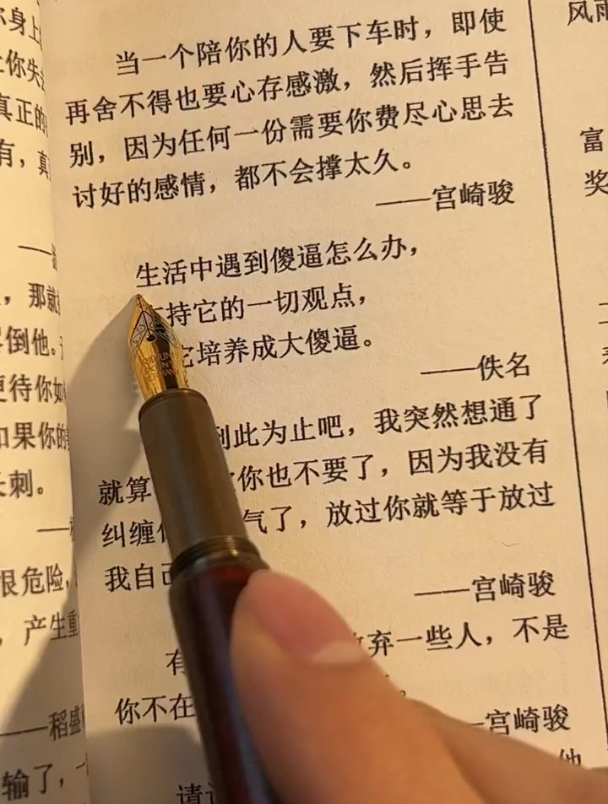 当一个陪你的人要下车时，即使
再舍不得也要心存感激，然后挥手告
别，因为任何一份需要你费尽心思去
讨好的感情，都不会撑太久。
——宫崎骏
生活中遇到傻逼怎么办，
持它的一切观点，
它培养成大傻逼。
——佚名
到此为止吧，我突然想通了
就算 你也不要了，因为我没有
纠缠 气了，放过你就等于放过
我自己
——宫崎骏
有 弃一些人，不是
你不在
——宫崎骏
他
请
身上
你失
真正的
有，真
，那就
倒他。
更待你如
如果你的
长刺。
很危险，
，产生重
——稻盛
输了，
风雨
富
奖